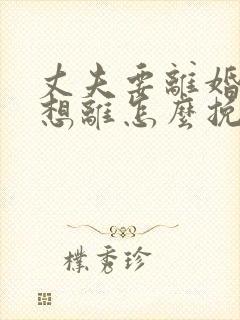 丈夫要離婚
想離怎麼挽
樸秀珍